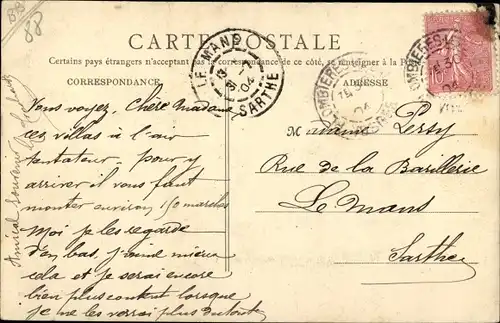 88
88
CARTE POSTALE
Certains pays étrangers n'acceptant pas la correspondance de ce côté, se renseigner à la
CORRESPONDANCE
ADRESSE
LE MANS
31 7 04
SARTHE
PLOMBIÈRES
Vous voyez, Chère Madame
ces villas à l'air
tentateur. pour y
arriver il vous faut
monter environ 150 marches
Moi je les regarde
d'en bas, j'aime mieux
cela et je serai encore
bien plus content lorsque
je ne les verrai plus du tout
Amical souvenir
Madame Persy
Rue de la Barillerie
Le Mans
Sarthe